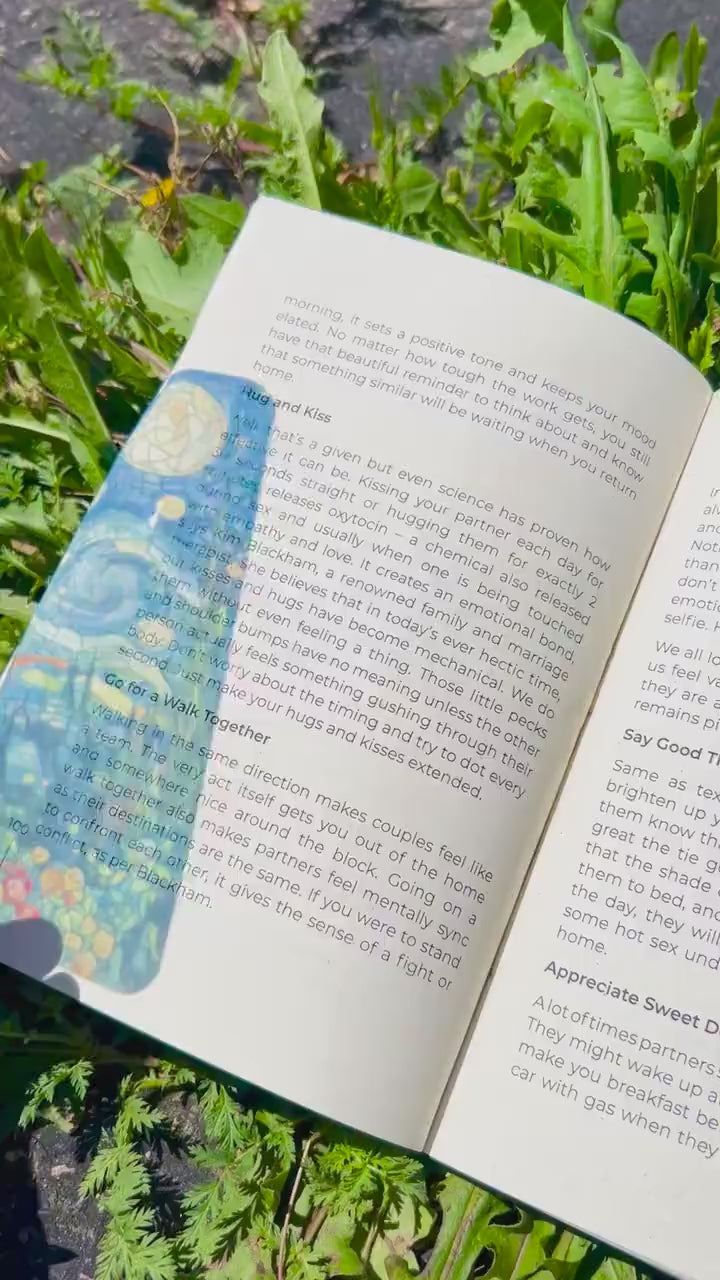 morning, it sets a positive tone and keeps your mood
elated. No matter how tough the work gets, you still
have that beautiful reminder to think about and know
that something similar will be waiting when you return
home.
Hug and Kiss
Well, that's a given but even science has proven how
effective it can be. Kissing your partner each day for
30 seconds straight or hugging them for exactly 2
minutes releases oxytocin – a chemical also released
during sex and usually when one is being touched
with empathy and love. It creates an emotional bond,
says Kim Blackham, a renowned family and marriage
therapist. She believes that in today's ever hectic time,
our kisses and hugs have become mechanical. We do
them without even feeling a thing. Those little pecks
and shoulder bumps have no meaning unless the other
person actually feels something gushing through their
body. Don't worry about the timing and try to dot every
second. Just make your hugs and kisses extended.
Go for a Walk Together
Walking in the same direction makes couples feel like
a team. The very act itself gets you out of the home
and somewhere nice around the block. Going on a
walk together also makes partners feel mentally sync
as their destinations are the same. If you were to stand
to confront each other, it gives the sense of a fight or
conflict, as per Blackham.
100
and
Not
than
don't
emoti
selfie. H
We all lo
us feel va
they are a
remains pi
Say Good T
Same as tex
brighten up y
them know th
great the tie g
that the shade
them to bed, and
the day, they will
some hot sex und
home.
Appreciate Sweet D
A lot of times partners
They might wake up a
make you breakfast be
car with gas when they